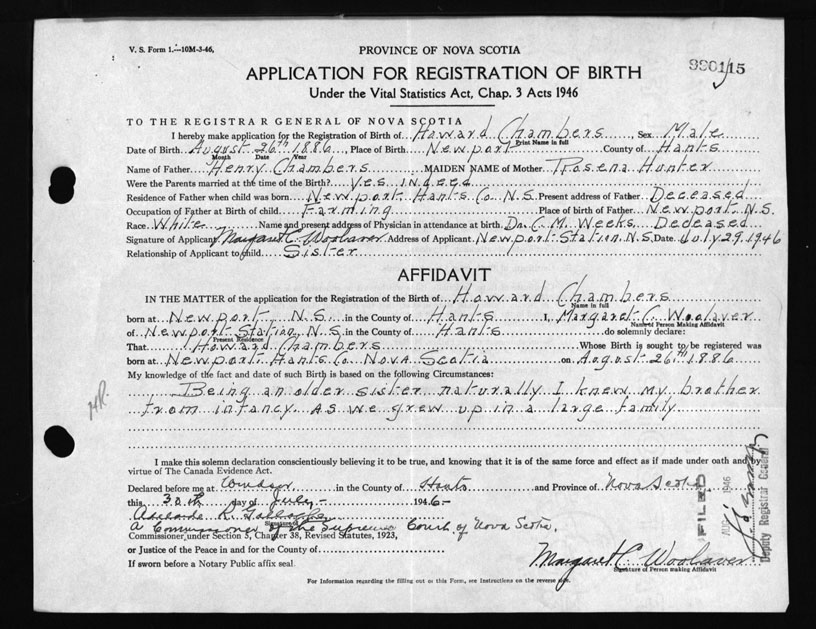 V. S. Form 1.—10M-3-46,
PROVINCE OF NOVA SCOTIA
APPLICATION FOR REGISTRATION OF BIRTH
Under the Vital Statistics Act, Chap. 3 Acts 1946
TO THE REGISTRAR GENERAL OF NOVA SCOTIA
I hereby make application for the Registration of Birth of Howard Chambers, Sex Male
Print Name in full
Date of Birth August 26th 1886, Place of Birth Newport County of Hants
Month Date Year
Name of Father Henry Chambers MAIDEN NAME of Mother Rosena Hunter
Were the Parents married at the time of the Birth? Yes indeed
Residence of Father when child was born Newport Hants Co N.S. Present address of Father Deceased
Occupation of Father at Birth of child Farming Place of birth of Father Newport N.S.
Race White Name and present address of Physician in attendance at birth Dr. C. M. Weeks Deceased
Signature of Applicant Margaret C. Woolaver Address of Applicant Newport Station N.S. Date July 29, 1946
Relationship of Applicant to child Sister
AFFIDAVIT
IN THE MATTER of the application for the Registration of the Birth of Howard Chambers
Name in full
born at Newport N.S. in the County of Hants I, Margaret C. Woolaver
Name of Person Making Affidavit
of Newport Station N.S. in the County of Hants do solemnly declare:
Present Residence
That Howard Chambers Whose Birth is sought to be registered was
born at Newport Hants Co. Nova Scotia on August 26th 1886
My knowledge of the fact and date of such Birth is based on the following Circumstances:
Being an older sister naturally I knew my brother
from infancy. As we grew up in a large family
I make this solemn declaration conscientiously believing it to be true, and knowing that it is of the same force and effect as if made under oath and by
virtue of The Canada Evidence Act.
Declared before me at Windsor in the County of Hants and Province of Nova Scotia
this 30th day of July 1946
Adelaide K.
A Commissioner of the Supreme Court of Nova Scotia,
Commissioner, under Section 5, Chapter 38, Revised Statutes, 1923,
or Justice of the Peace in and for the County of
If sworn before a Notary Public affix seal.
Margaret C. Woolaver
Signature of Person making Affidavit
For Information regarding the filling out of this Form, see Instructions on the reverse side.
FILED
AUG 1946
Deputy Registrar General